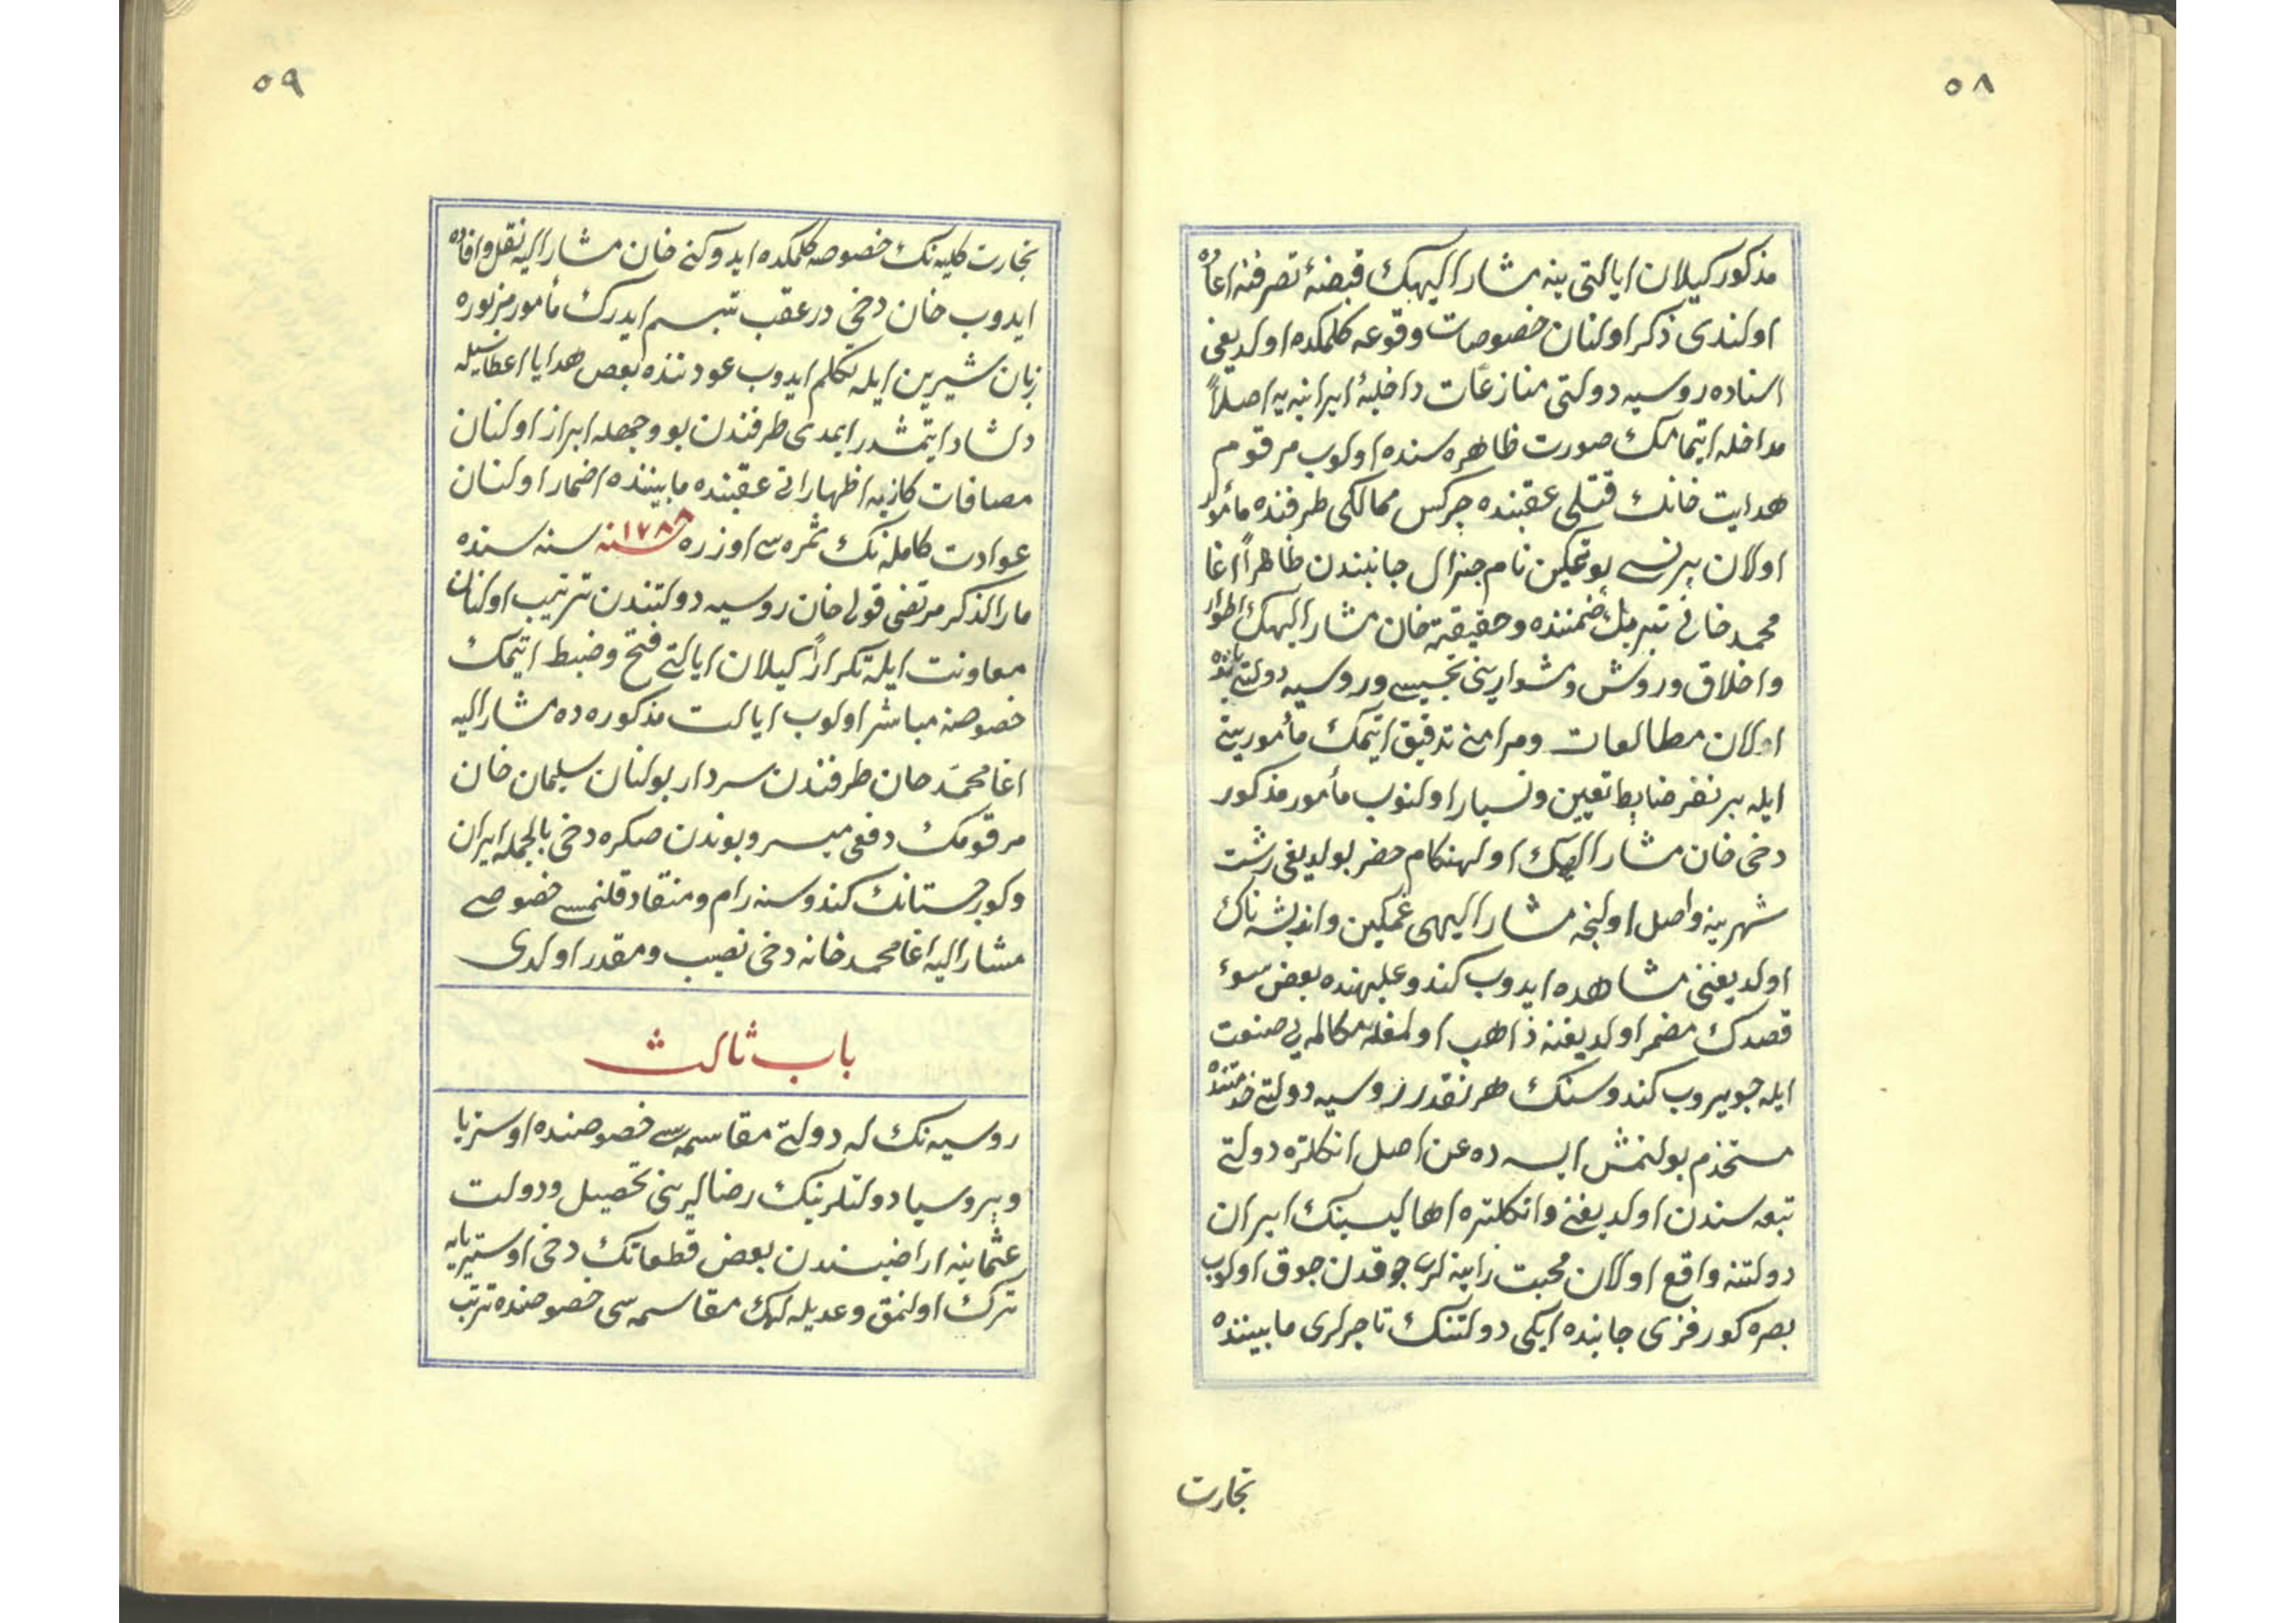 ٥٨
مذكور كيلان ايالتى ينه مشار اليهك قبضهٔ تصرفنه اعاده
اولندى ذكر اولنان خصوصات وقوعه كلمكده اولديغى
اثناده روسيه دولتى منازعات داخليهٔ ايرانيه يه اصلاً
مداخله ايتمامك صورت ظاهره سنده اولوب مرقوم
هدايت خانك قتلى عقبنده چركس ممالكى طرفنده مأمور
اولان پرنس پوتمكين نام جنرال جانبندن ظاهراً اغا
محمد خانى تبريك ضمننده وحقيقة خان مشار اليهك اطوار
واخلاق وروش وشوارينى تجسس وروسيه دولتى حقنده
اولان مطالعات ومرامنى تدقيق ايتمك مأموريتى
ايله بر نفر ضابط تعيين وتسيار اولنوب مأمور مذكور
دخى خان مشار اليهك اولهنكام حضر بولديغى رشت
شهرينه واصل اولنجه مشار اليهى غمكين وانديشه ناك
اولديغنى مشاهده ايدوب كندو عليهنده بعض سوء
قصدك مضمر اولديغنه ذاهب اولمغله مكالمه يى صنعت
ايله چويروب كندوسنك هر نقدر روسيه دولتى خدمتنده
مستخدم بولنمش ايسه ده عن اصل انكلتره دولتى
تبعه سندن اولديغنى وانكلتره اهاليسينك ايران
دولتنه واقع اولان محبت زاينه لرى چوقدن چوق اولوب
بصره كورفزى جانبنده ايكى دولتنك تاجرلرى مابيننده
تجارت
٥٩
تجارت كليه نك خصوصه كلمكده ايدوكنى خان مشار اليه نقل وافاده
ايدوب خان دخى درعقب تبسم ايدرك مأمور مزبوره
زبان شيرين ايله تكلم ايدوب عودتنده بعض هدايا اعطاسيله
دلشاد ايتمشدر ايمدى طرفندن بو وجهله ابراز اولنان
مصافات كاذبه اظهاراتى عقبنده مابيننده اضمار اولنان
عوادت كامله نك ثمره سى اوزره ١٧٨٨ سنه سنه سنده
مار الذكر مرتضى قولى خان روسيه دولتندن ترتيب اولنان
معاونت ايله تكراراً كيلان ايالتى فتح وضبط ايتمك
خصوصنه مباشر اولوب ايالت مذكوره ده مشار اليه
اغا محمد خان طرفندن سردار بولنان سليمان خان
مرقومك دفعى ميسر وبوندن صكره دخى بالجمله ايران
وكورجستانك كندوسنه رام ومنقاد قلنمسى خصوصى
مشار اليه اغا محمد خانه دخى نصيب ومقدر اولدى
باب ثالث
روسيه نك له دولتى مقاسمه سى خصوصنده اوستريا
وپروسيا دولتلرينك رضالرينى تحصيل ودولت
عثمانيه اراضيسندن بعض قطعاتك دخى اوستريايه
ترك اولنمق وعديله لهك مقاسمه سى خصوصنده ترتيب